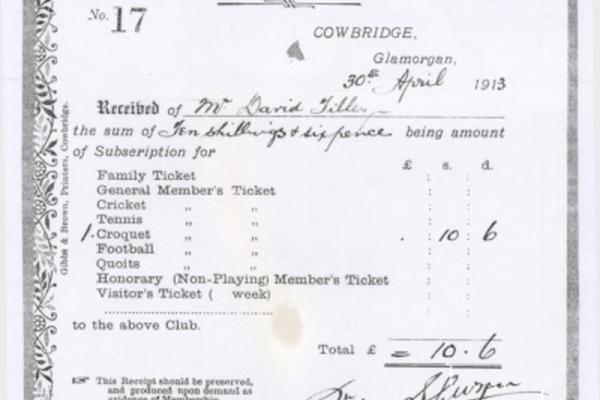 No. 17
COWBRIDGE,
Glamorgan,
30th April 1913
Received of Mr David Tilley
the sum of Ten shillings & sixpence being amount
of Subscription for
£ s. d.
Family Ticket
General Member's Ticket
Cricket " "
Tennis " "
1. Croquet " " . 10 6
Football " "
Quoits " "
Honorary (Non-Playing) Member's Ticket
Visitor's Ticket ( week)
to the above Club.
Total £ = 10. 6
☞ This Receipt should be preserved,
and produced upon demand as
evidence of Membership
Gibbs & Brown, Printers, Cowbridge.